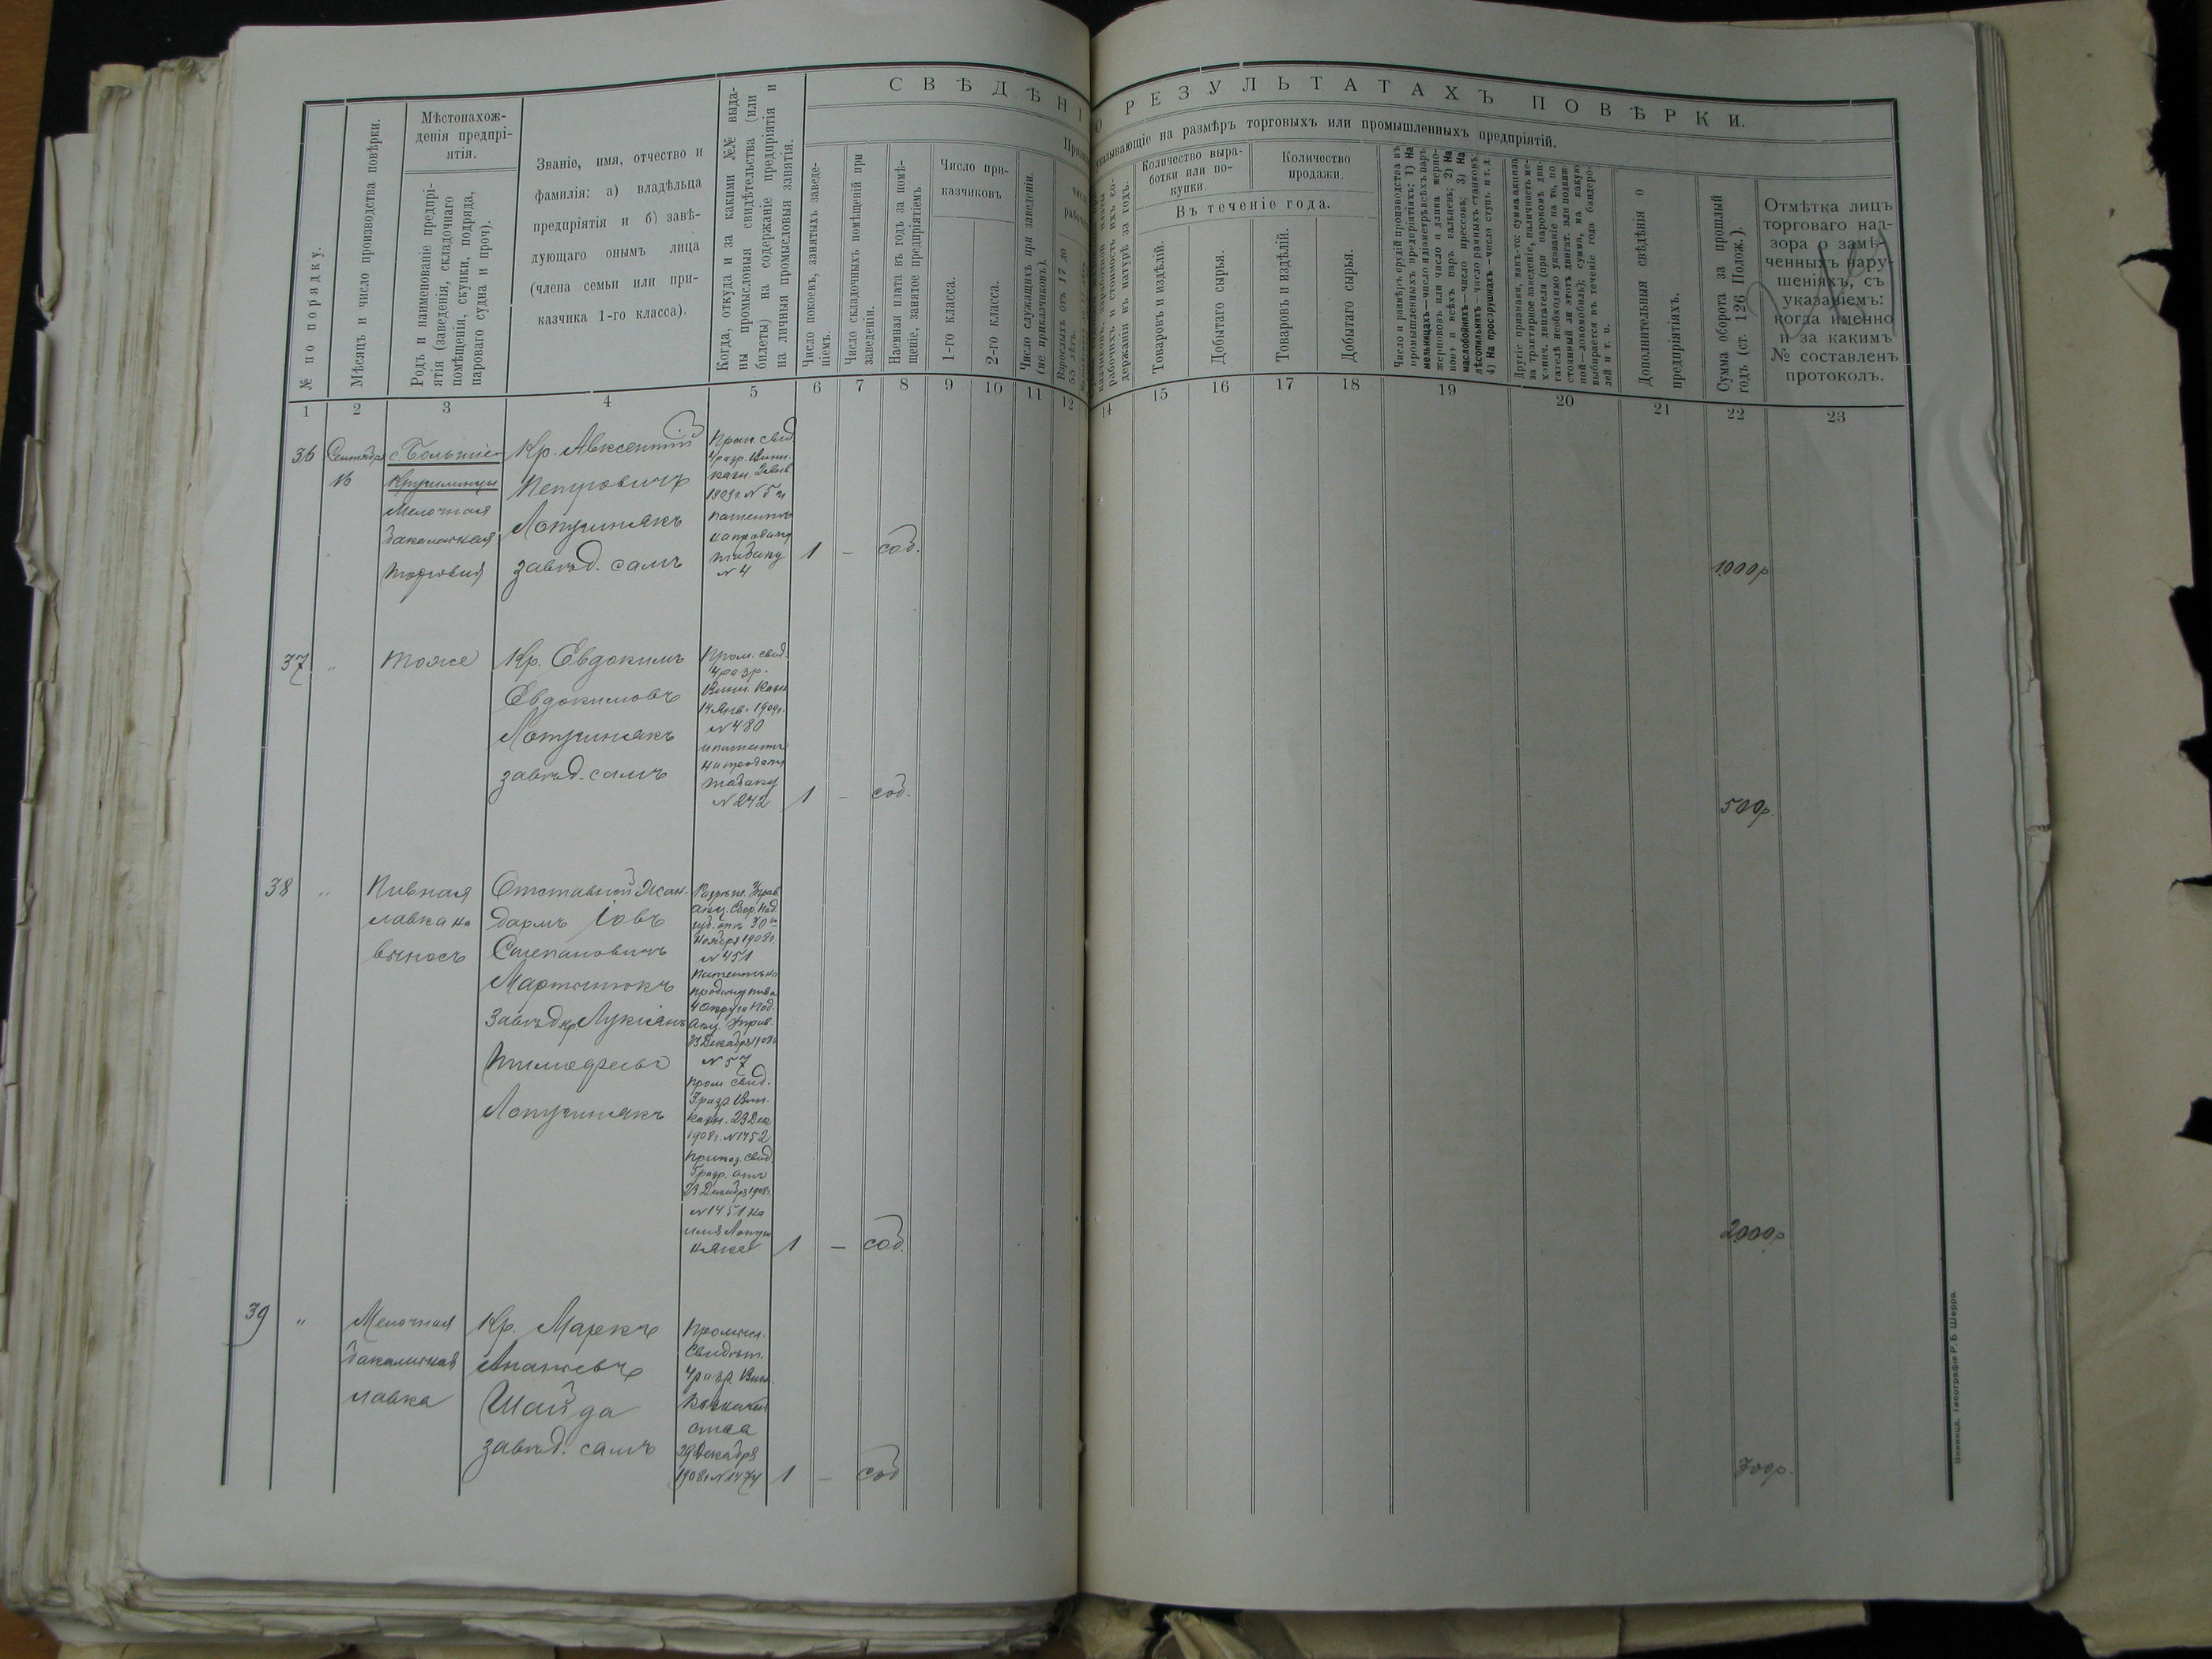 СВѢДѢНІ
О РЕЗУЛЬТАТАХЪ ПОВѢРКИ.
указывающіе на размѣръ торговыхъ или промышленныхъ предпріятій.
№ по порядку.
Мѣсяцъ и число производства повѣрки.
Мѣстонахож-
денія предпрі-
ятія.
Родъ и наименованіе предпрі-
ятія (заведенія, складочнаго
помѣщенія, скупки, подряда,
парового судна и проч).
Званіе, имя, отчество и
фамилія: а) владѣльца
предпріятія и б) завѣ-
дующаго онымъ лица
(члена семьи или при-
казчика 1-го класса).
Когда, откуда и за какими №№ выда-
ны промысловыя свидѣтельства (или
билеты) на содержаніе предпріятія и
на личныя промысловыя занятія.
Число покоевъ, занятыхъ заведе-
ніемъ.
Число складочныхъ помѣщеній при
заведеніи.
Наемная плата въ годъ за помѣ-
щеніе, занятое предпріятіемъ
Число при-
казчиковъ
1-го класса.
2-го класса.
Число служащихъ при заведеніи.
(не приказчиковъ).
Взрослыхъ отъ 17 до
55 лѣтъ.
рабочихъ и стоимость ихъ со-
держанія въ натурѣ за годъ.
Количество выра-
ботки или по-
купки.
Количество
продажи.
Въ теченіе года.
Товаровъ и издѣлій.
Добытаго сырья.
Товаровъ и издѣлій.
Добытаго сырья.
Число и размѣръ орудій производства въ
промышленныхъ предпріятіяхъ: 1) На
мельницахъ—число и діаметръ всѣхъ паръ
жернововъ или число и длина жерно-
вовъ и всѣхъ паръ вальцевъ; 2) На
маслобойняхъ—число прессовъ; 3) На
лѣсопильняхъ—число рамныхъ станковъ;
4) На просорушкахъ—число ступъ и т. д.
Другіе признаки, какъ-то: сумма акциза
за трактирное заведеніе, наличность ме-
ханич. двигателя (при паровомъ дви-
гателѣ необходимо указаніе на то, по
стоянный ли этотъ двигат. или подвиж-
ной—локомобиль); сумма, на какую
выбирается въ теченіе года бандеро-
лей и т. п.
Дополнительныя свѣдѣнія о
предпріятіяхъ.
Сумма оборота за прошлый
годъ (ст. 126 Полож.).
Отмѣтка лицъ
торговаго над-
зора о замѣ-
ченныхъ нару-
шеніяхъ, съ
указаніемъ:
когда именно
и за какимъ
№ составленъ
протоколъ.
1 2 3 4 5 6 7 8 9 10 11 12
14 15 16 17 18 19 20 21 22 23
36
Сентября
16
с. Большіе-
Крушлинцы
Мелочная
бакалейная
торговля
Кр. Авксентій
Петровичъ
Лопушнякъ
завѣд. самъ
Пром. свид.
4 разр. Винн.
казн.
1909 г. №
патентъ
на продажу
табаку
№ 4
1 — соб.
1000р
37 „
тоже
Кр. Евдокимъ
Евдокимовъ
Лопушнякъ
завѣд. самъ
Пром. свид.
4 разр.
Винн. Казн
14 Янв. 1909г.
№ 480
и патентъ
на продажу
табаку
№ 242
1 — соб.
500р.
38 „
Пивная
лавка на
выносъ
Отставной Жан-
дармъ Іовъ
Степановичъ
Мартынюкъ
Завѣд кр. Лукіянъ
Тимофеевъ
Лопушнякъ
Разрѣш. Управ
акц. Сбор. Под.
губ. отъ 30го
Ноября 1908г.
№ 451
Патентъ на
продажу пива
4 Округа Под.
Акц. Управ.
23 Декабря 1908г
№ 57
Пром. свид.
3 разр. Вин.
казн. 23 Дек
1908г. № 1452
Приказ. свид.
5 разр. отъ
23 Декабря 1908г.
№ 1451 на
имя Лопуш
няка
1 — соб.
2000р
39 „
Мелочная
бакалейная
лавка
Кр. Марекъ
Ананьевъ
Шайда
завѣд. самъ
Промысл.
Свидѣт.
4 разр. Вин.
Казначей
ства
29 Декабря
1908г № 1474
1 — соб
300р.
Винница. Типографія Р. Б. Шерра.